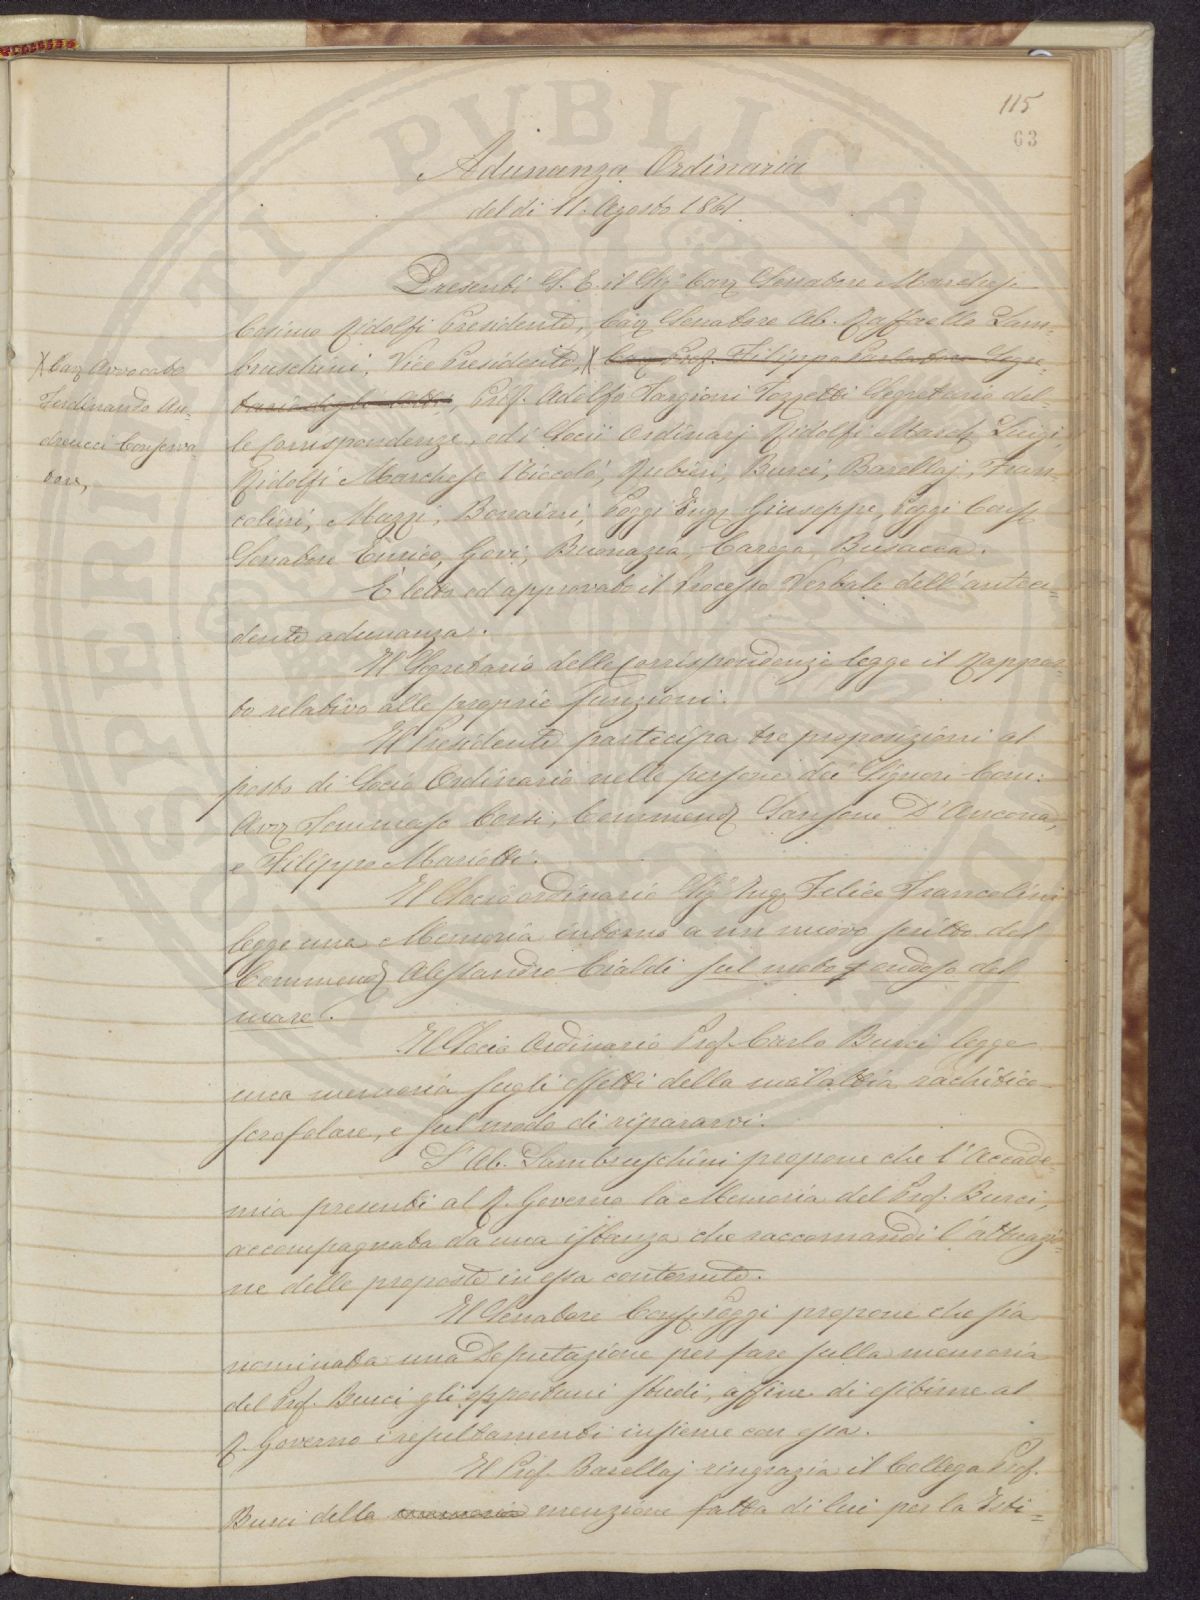 115
63
Adunanza Ordinaria
del dì 11. Agosto 1861
Presenti S. E. il Sig.r Cav. Senatore Marchese
Cosimo Ridolfi Presidente, Cav. Senatore Ab. Raffaello Lam=
bruschini, Vice Presidente, X Cav. Prof. Filippo Parlatore Segre=
tario degli Atti, Prof. Adolfo Targioni Tozzetti Segretario del=
le Corrispondenze, ed i Socii Ordinarj Ridolfi March. Luigi,
Ridolfi Marchese Niccolò, Rubieri, Burci, Barellaj, Fran=
colini, Mazzi, Bonaini, Poggi Ing. Giuseppe, Poggi Cons.
Senatore Enrico, Govi, Buonazia, Carega, Busacca.
X Cav. Avvocato
Ferdinando An=
dreucci Conserva
tore,
È letto ed approvato il Processo Verbale dell'antece=
dente adunanza.
Il Segretario delle Corrispondenze legge il Rappor=
to relativo alle proprie funzioni.
Il Presidente partecipa tre proposizioni al
posto di Socio Ordinario nelle persone dei Signori Com:
Avv. Tommaso Corsi, Commend. Sansone D'Ancona,
e Filippo Mariotti.
Il Socio ordinario Sig.r Ing. Felice Francolini
legge una Memoria intorno a un nuovo scritto del
Commend. Alessandro Cialdi sul moto ondoso del
mare.
Il Socio Ordinario Prof. Carlo Burci legge
una memoria sugli effetti della malattia rachitico
scrofolare, e sul modo di ripararvi.
L'Ab. Lambruschini propone che l'Accade=
mia presenti al R. Governo la Memoria del Prof. Burci,
accompagnata da una istanza che raccomandi l'attuazio=
ne delle proposte in essa contenute.
Il Senatore Cons. Poggi propone che sia
nominata una Deputazione per fare sulla memoria
del Prof. Burci gli opportuni studi, affine di esibirne al
R. Governo i resultamenti insieme con essa.
Il Prof. Barellaj ringrazia il Collega Prof.
Burci della memoria menzione fatta di lui per la Isti=